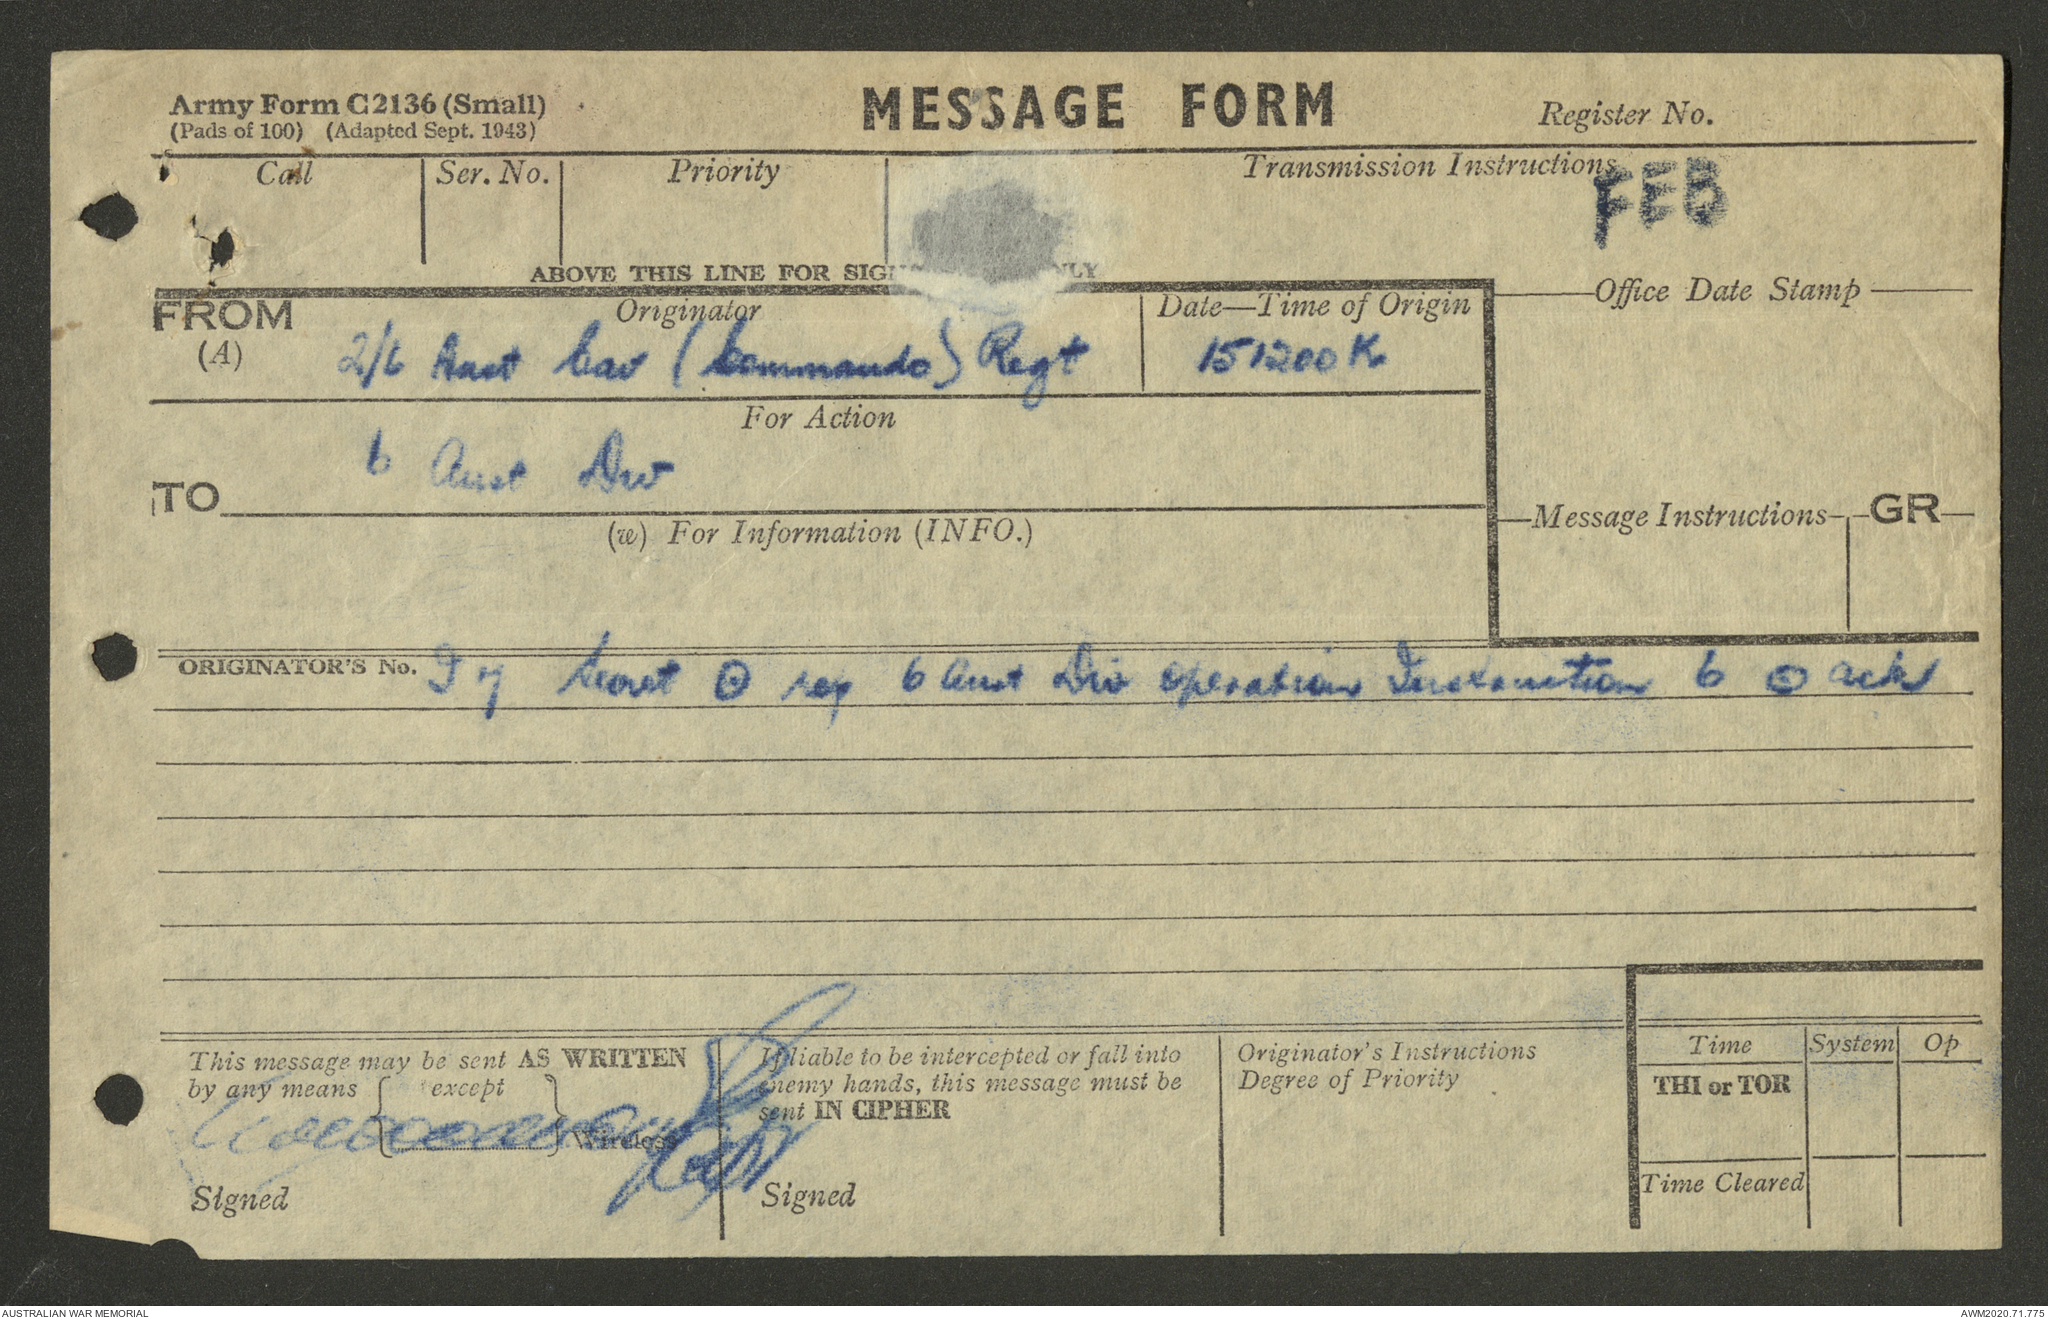 Army Form C2136 (Small)
(Pads of 100) (Adapted Sept. 1943)
MESSAGE FORM
Register No.
Call
Ser. No.
Priority
Transmission Instructions
FEB
ABOVE THIS LINE FOR
FROM
(A)
Originator
2/6 Aust Cav (Commando) Regt
Date—Time of Origin
151200K
Office Date Stamp
For Action
TO
6 Aust Div
(w) For Information (INFO.)
Message Instructions
GR
ORIGINATOR'S No.
Secret ⊙ 6 Aust Div Operation Instruction 6 ⊙ ack
This message may be sent AS WRITTEN
by any means
except
Wireless
Signed
If liable to be intercepted or fall into
enemy hands, this message must be
sent IN CIPHER
Signed
Originator's Instructions
Degree of Priority
Time
System
Op
THI or TOR
Time Cleared
AUSTRALIAN WAR MEMORIAL
AWM2020.71.775